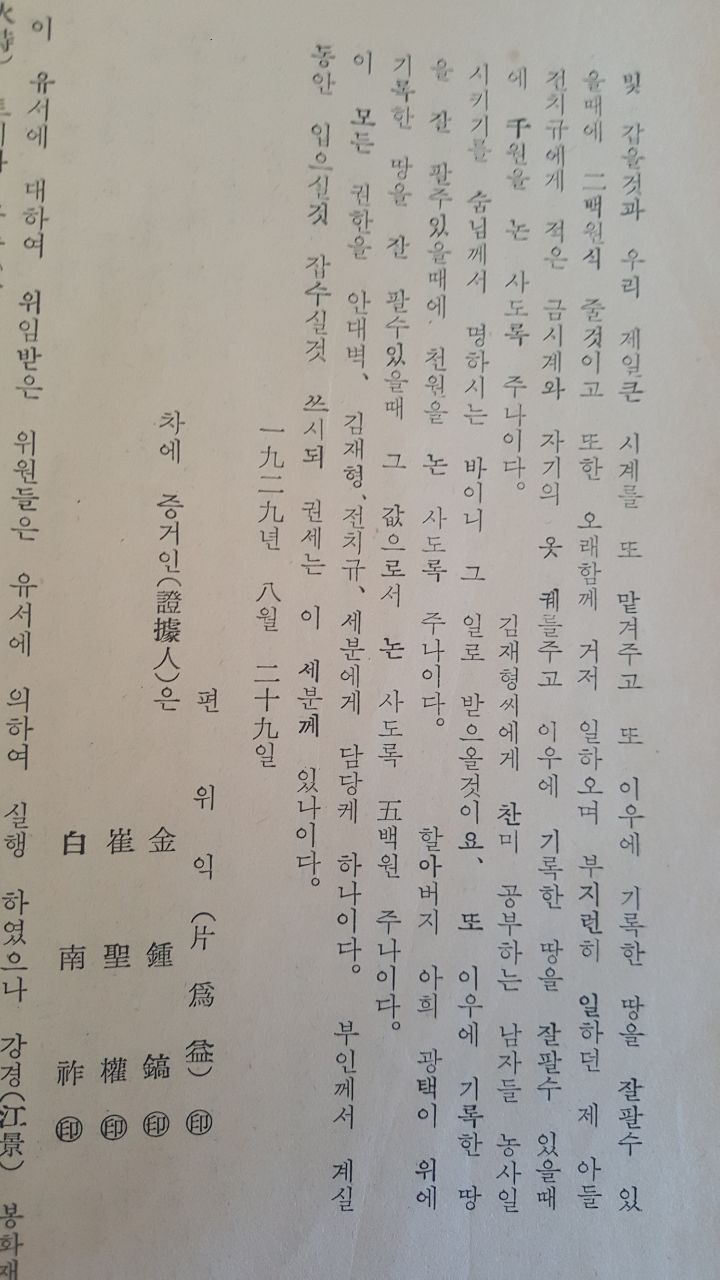 및 감을것과 우리 제일큰 시계를 또 맡겨주고 또 이우에 기록한 땅을 잘팔수 있
을때에 二백원식 줄것이고 또한 오래함께 거저 일하오며 부지런히 일하던 제 아들
전치규에게 적은 금시계와 자기의 옷 궤를주고 이우에 기록한 땅을 잘팔수 있을때
에 千원을 논 사도록 주나이다。 김재형씨에게 찬미 공부하는 남자들 농사일
시키기를 숨님께서 명하시는 바이니 그 일로 받으올것이요、 또 이우에 기록한 땅
을 잔 팔주있을때에 천원을 논 사도록 주나이다。 할아버지 아희 광택이 위에
기록한 땅을 잔 팔수있을때 그 값으로서 논 사도록 五백원 주나이다。
이 모든 권한을 안대벽、 김재형、전치규、세분에게 담당케 하나이다。 부인께서 계실
동안 입으실것 잡수실것 쓰시되 권세는 이 세분께 있나이다。
一九二九년 八월 二十九일
편 위 익 (片 爲 益) ㊞
차에 증거인(證據人)은 金 鍾 鎬 ㊞
崔 聖 權 ㊞
白 南 祚 ㊞
이 유서에 대하여 위임받은 위원들은 유서에 의하여 실행 하였으나 강경(江景) 봉화재